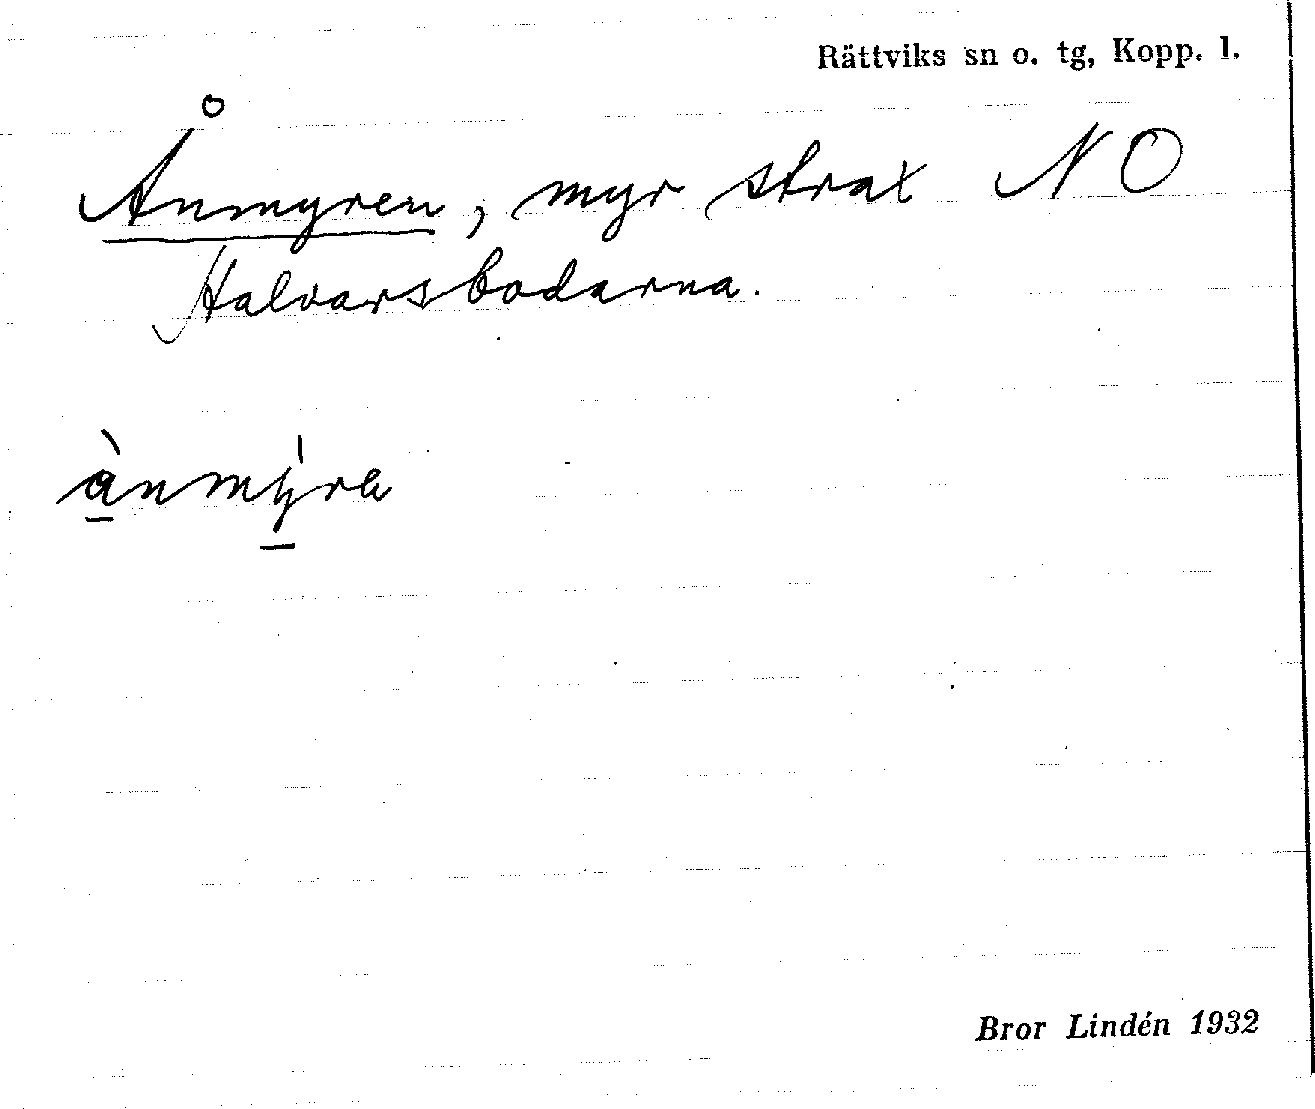 Rättviks sn o. tg, Kopp. l.
Ånmyren, myr strax NO
Halvarsbodarna.
a̱̍̀nmy̱̍ra
Bror Lindén 1932